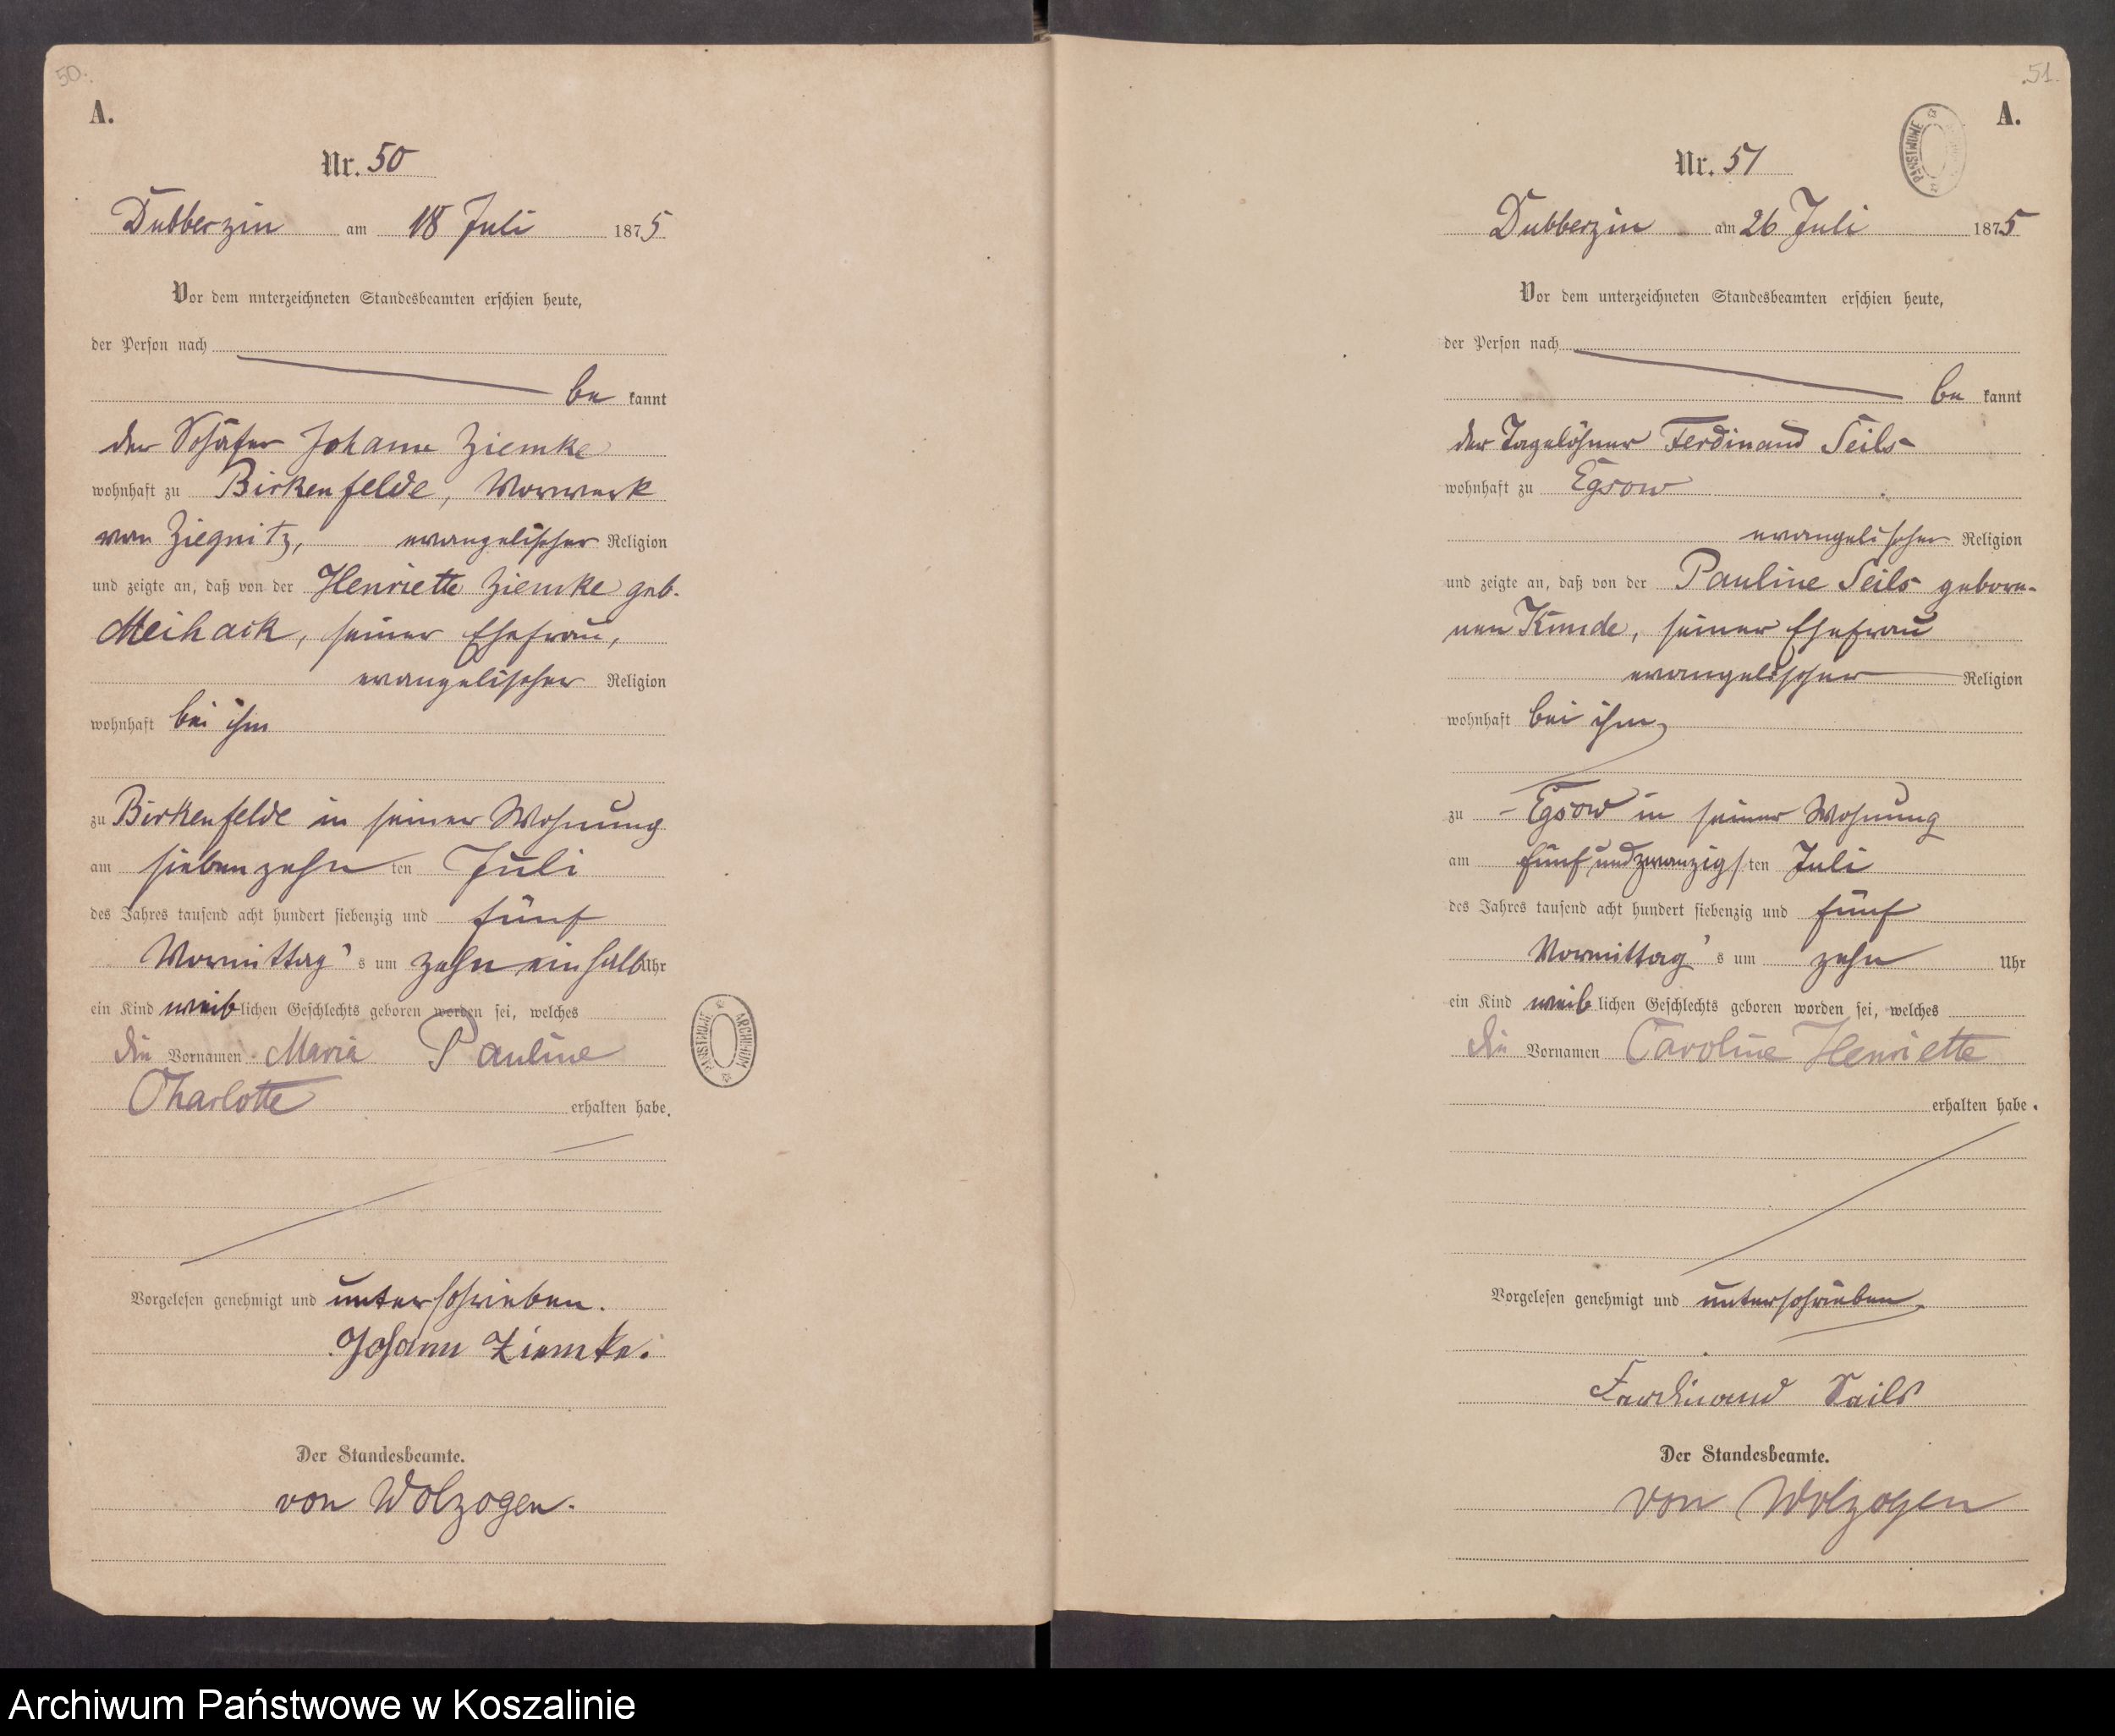 50.
A.
Nr. 50
Dubberzin am 18 Juli 1875
Vor dem unterzeichneten Standesbeamten erschien heute,
der Person nach
be kannt
der Schäfer Johann Ziemke
wohnhaft zu Birkenfelde, Vorwerk
von Ziegnitz, evangelischer Religion
und zeigte an, daß von der Henriette Ziemke geb.
Meihack, seiner Ehefrau,
evangelischer Religion
wohnhaft bei ihm
zu Birkenfelde in seiner Wohnung
am siebenzehn ten Juli
des Jahres tausend acht hundert siebenzig und fünf
Vormittag's um zehn ein halb Uhr
ein Kind weiblichen Geschlechts geboren worden sei, welches
die Vornamen Maria Pauline
Charlotte erhalten habe.
Vorgelesen genehmigt und unterschrieben.
Johann Ziemke.
Der Standesbeamte.
von Wolzogen.
PAŃSTWOWE ARCHIWUM
51.
A.
PAŃSTWOWE
Nr. 51
Dubberzin am 26 Juli 1875
Vor dem unterzeichneten Standesbeamten erschien heute,
der Person nach
be kannt
der Tagelöhner Ferdinand Seils
wohnhaft zu Egsow
evangelischer Religion
und zeigte an, daß von der Pauline Seils gebore-
nen Kunde, seiner Ehefrau
evangelischer Religion
wohnhaft bei ihm,
zu Egsow in seiner Wohnung
am fünfundzwanzigs ten Juli
des Jahres tausend acht hundert siebenzig und fünf
Vormittag's um zehn Uhr
ein Kind weiblichen Geschlechts geboren worden sei, welches
die Vornamen Caroline Henriette
erhalten habe.
Vorgelesen genehmigt und unterschrieben,
Ferdinand Seils
Der Standesbeamte.
von Wolzogen
Archiwum Państwowe w Koszalinie